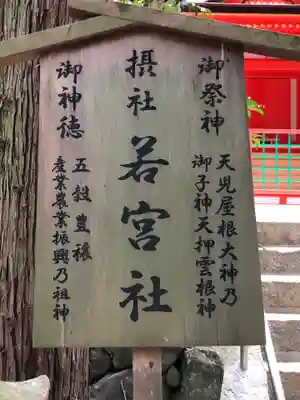 御祭神
天児屋根大神乃
御子神天押雲根神
摂社 若宮社
御神徳
五穀豊穣
産業農業振興乃祖神